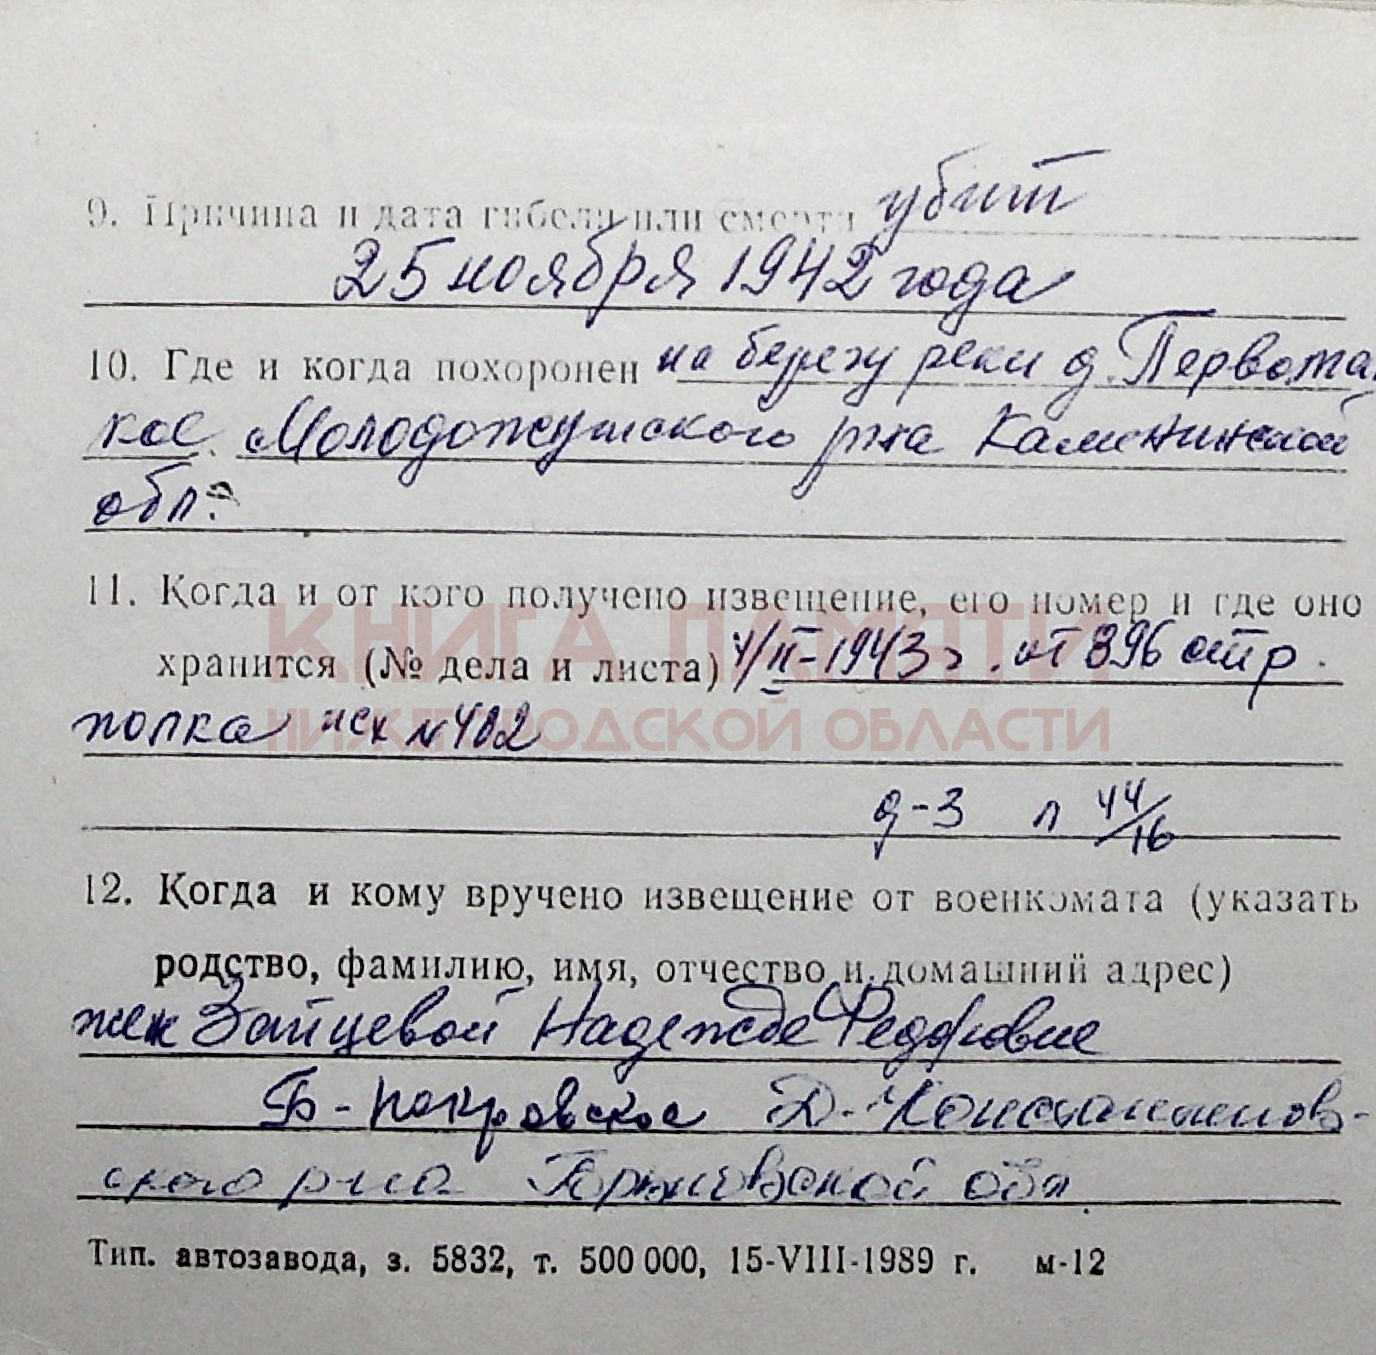 9. Причина и дата гибели или смерти убит
25 ноября 1942 года
10. Где и когда похоронен на берегу реки д. Первома
кое Молодотудского р-на Калининской
обл.
11. Когда и от кого получено извещение, его номер и где оно
КНИГА ПАМЯТИ
хранится (№ дела и листа) 4/II-1943 г. от 896 стр.
полка исх №402
НИЖЕГОРОДСКОЙ ОБЛАСТИ
д-3 л 44/16
12. Когда и кому вручено извещение от военкомата (указать
родство, фамилию, имя, отчество и домашний адрес)
жен Зайцевой Надежде Федоровне
Б-Покровское Д-Константинов-
ского р-на Горьковской обл
Тип. автозавода, з. 5832, т. 500 000, 15-VIII-1989 г. м-12